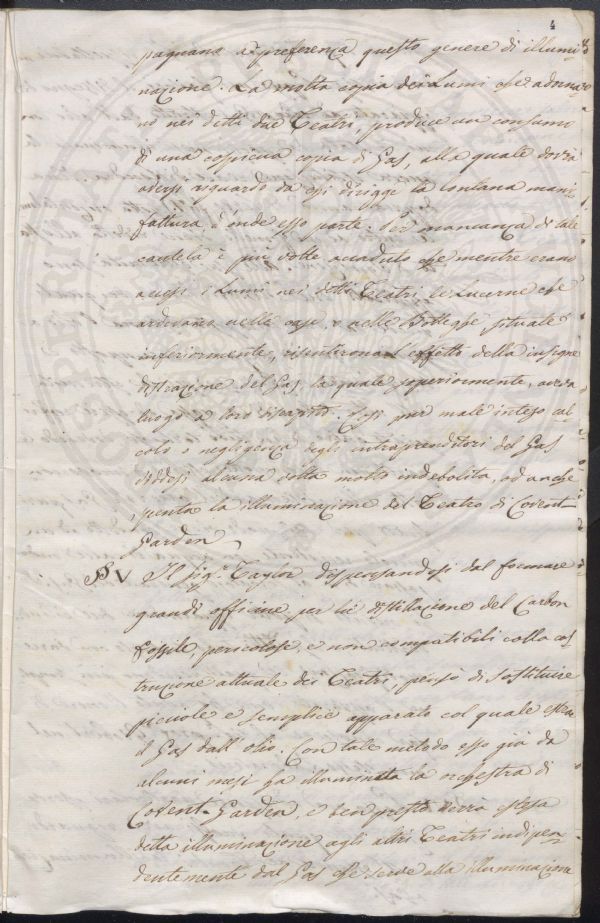 4
pagnano a preferenza questo genere di illumi
nazione. La molta copia dei Lumi che adorna
no nei detti due Teatri, produce un consumo
di una copiosa copia di Gas, alla quale dovrà
aversi riguardo da chi dirigge la lontana mani
fattura d'onde esso parte. Per mancanza di tale
cautela è più volte accaduto che mentre erano
accesi i Lumi nei detti Teatri le Lucerne che
ardevano nelle case, e nelle Botteghe situate
inferiormente, risentirono l'effetto della insigne
distrazione del Gas, la quale superiormente, aveva
luogo a loro discapito. Così pur male inteso cal
colo o negligenza degli intraprenditori del Gas
videsi alcuna volta molto indebolita, ed anche
spenta la illuminazione del Teatro di Covent
Garden
§ V Il Sigr. Taylor dispensandosi dal formare
grandi officine per la distillazione del Carbon
Fossile, pericolose, e non compatibili colla cos
truzione attuale dei Teatri pensò di sostituire
picciole e semplice apparato col quale estrae
il Gas dall'olio. Con tale metodo esso già da
alcuni mesi ha illuminata la orchestra di
Covent-Garden, e ben presto verrà estesa
detta illuminazione agli altri Teatri indipen
dentemente dal Gas che serve alla illuminazione